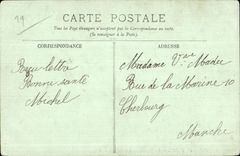 19
CARTE POSTALE
Tous les Pays étrangers n'acceptent pas la Correspondance au recto.
(Se renseigner à la Poste).
CORRESPONDANCE
ADRESSE
Reçu lettre
Bonne santé
Michel
Madame Vve
Rue de la Marine 10
Cherbourg
Manche